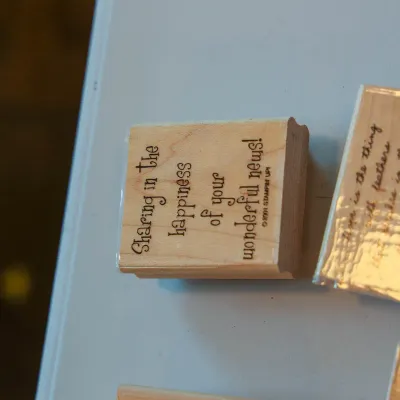 Sharing in the
happiness
of your
wonderful news!
© 2001 STAMPIN' UP!
is the thing
feathers